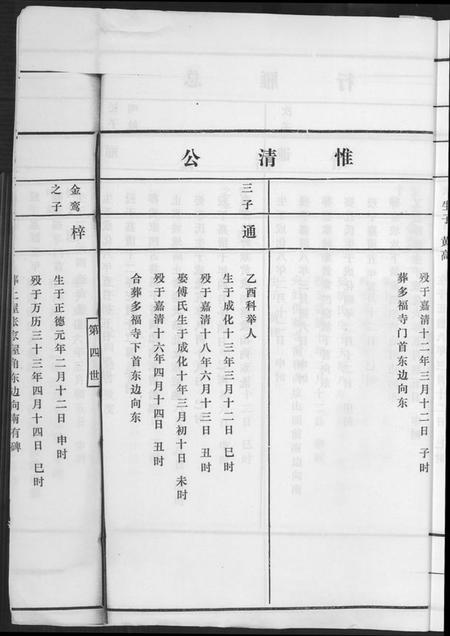 惟清公
殁于嘉清十二年三月十二日 子时
葬多福寺门首东边向东
三子 通
乙酉科举人
生于成化十三年三月十二日 巳时
殁于嘉清十八年六月十三日 丑时
娶傅氏生于成化十年三月初十日 未时
殁于嘉清十六年四月十四日 丑时
合葬多福寺下首东边向东
第四世
金鸾之子 梓
生于正德元年二月十二日 申时
殁于万历三十三年四月十四日 巳时
屋角东边向南有碑